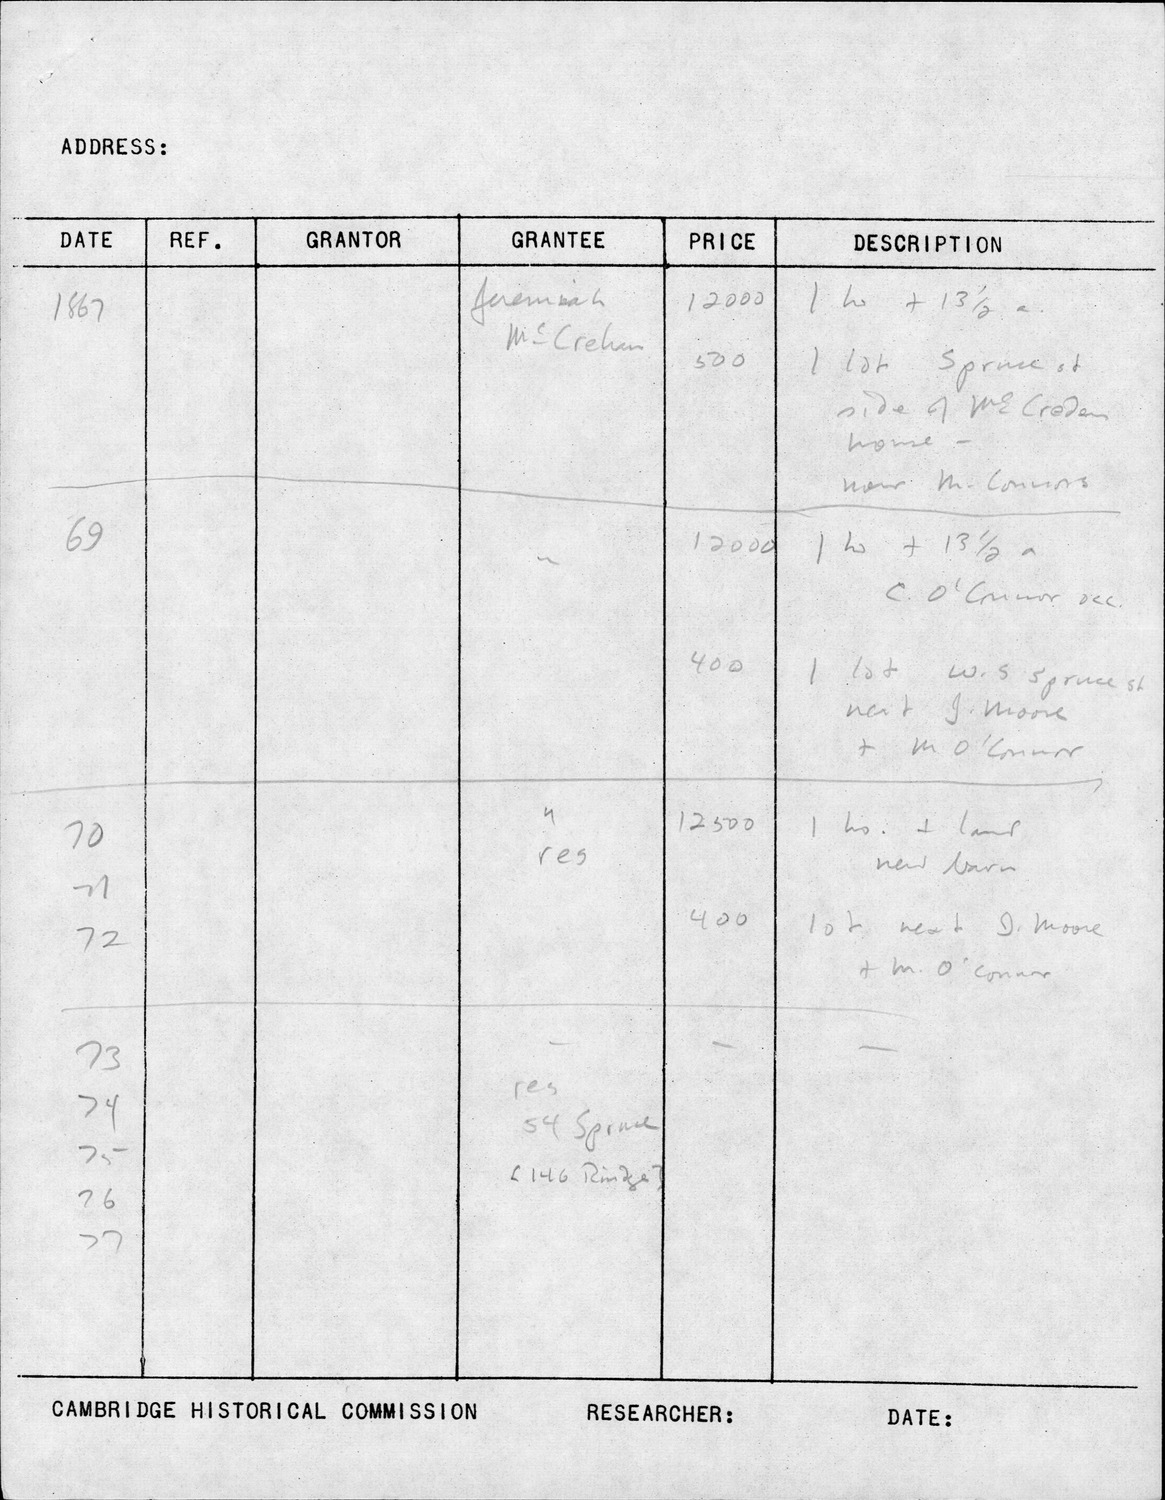 ADDRESS:
DATE REF. GRANTOR GRANTEE PRICE DESCRIPTION
1867 Jeremiah 12000 1 ho + 13 1/2 a.
McCrehan
500 1 lot Spruce st
side of McCrehan
house -
near M. Connors
69 " 12000 1 ho + 13 1/2 a
C. O'Connor occ.
400 1 lot W.S Spruce st
next J. Moore
+ M O'Connor
70 " 12500 1 ho. + land
res new barn
71
72 400 lot next J. Moore
+ M. O'Connor
73 - - -
74 res
54 Spruce
75
(146 Rindge?)
76
77
CAMBRIDGE HISTORICAL COMMISSION RESEARCHER: DATE: